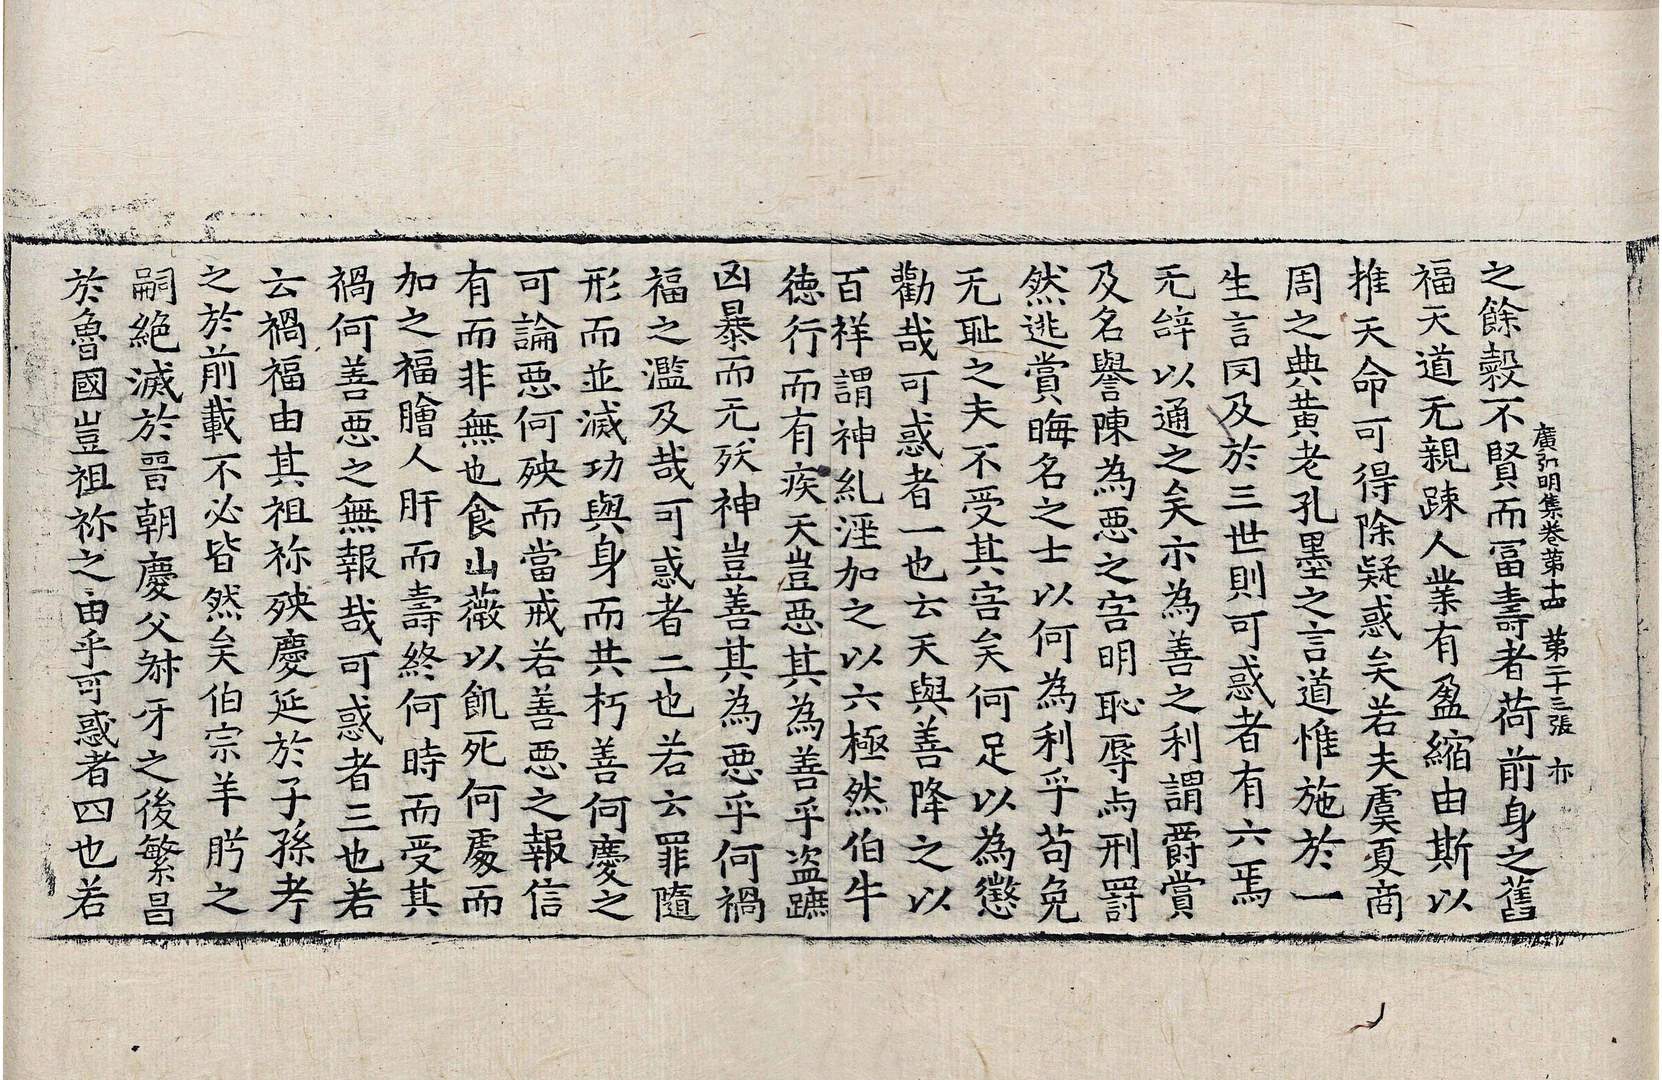 廣弘明集卷第十四　第二十三張　亦
之餘殃不賢而冨壽者荷前身之舊
福天道无親踈人業有盈縮由斯以
推天命可得除疑惑矣若夫虞夏商
周之典黄老孔墨之言道惟施於一
生言罔及於三世則可惑者有六焉
无辝以通之矣亦為善之利謂爵賞
及名譽陳為惡之害明恥辱与刑罸
然逃賞晦名之士以何為利乎茍免
无耻之夫不受其害矣何足以為懲
勸哉可惑者一也云天與善降之以
百祥謂神糺淫加之以六極然伯牛
徳行而有疾天豈惡其為善乎盗蹠
凶暴而无殀神豈善其為惡乎何禍
福之濫及哉可惑者二也若云罪隨
形而並滅功與身而共朽善何慶之
可論惡何殃而當戒若善惡之報信
有而非無也食山薇以飢死何處而
加之福膾人肝而壽終何時而受其
禍何善惡之無報哉可惑者三也若
云禍福由其祖祢殃慶延於子孫考
之於前載不必皆然矣伯宗羊肸之
嗣絶滅於晉朝慶父牙之後繁昌
於魯國豈祖祢之由乎可惑者四也若